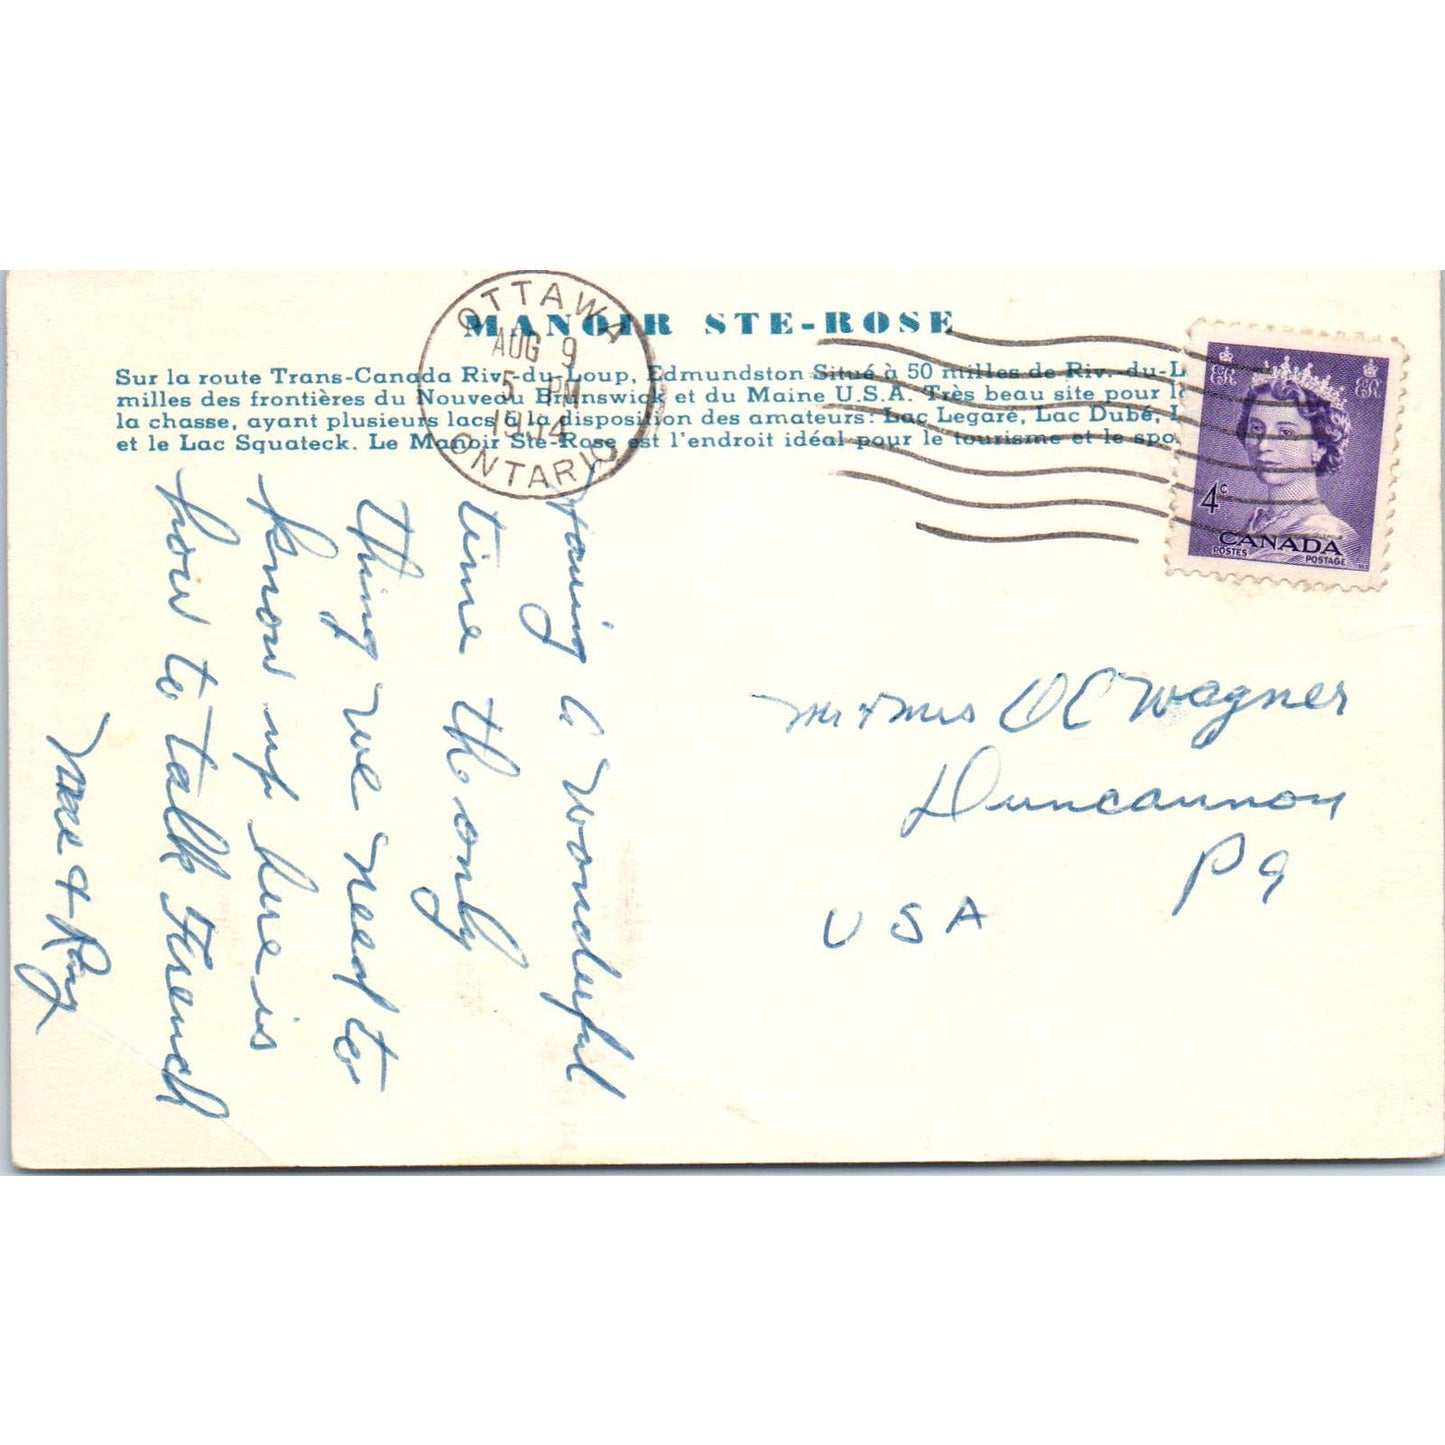 MANOIR STE-ROSE
Sur la route Trans-Canada Riv.-du-Loup, Edmundston Situé à 50 milles de Riv.-du-L
milles des frontières du Nouveau Brunswick et du Maine U.S.A. Très beau site pour
la chasse, ayant plusieurs lacs à la disposition des amateurs: Lac Legaré, Lac Dubé,
et le Lac Squateck. Le Manoir Ste-Rose est l'endroit idéal pour le tourisme et le spo
OTTAWA
AUG 9
5 PM
ONTARIO
4c
CANADA
POSTES POSTAGE
Having a wonderful
time the only
thing we need to
know up here is
how to talk French
& Ray
Mr & Mrs O C Wagner
Duncannon
Pa
USA